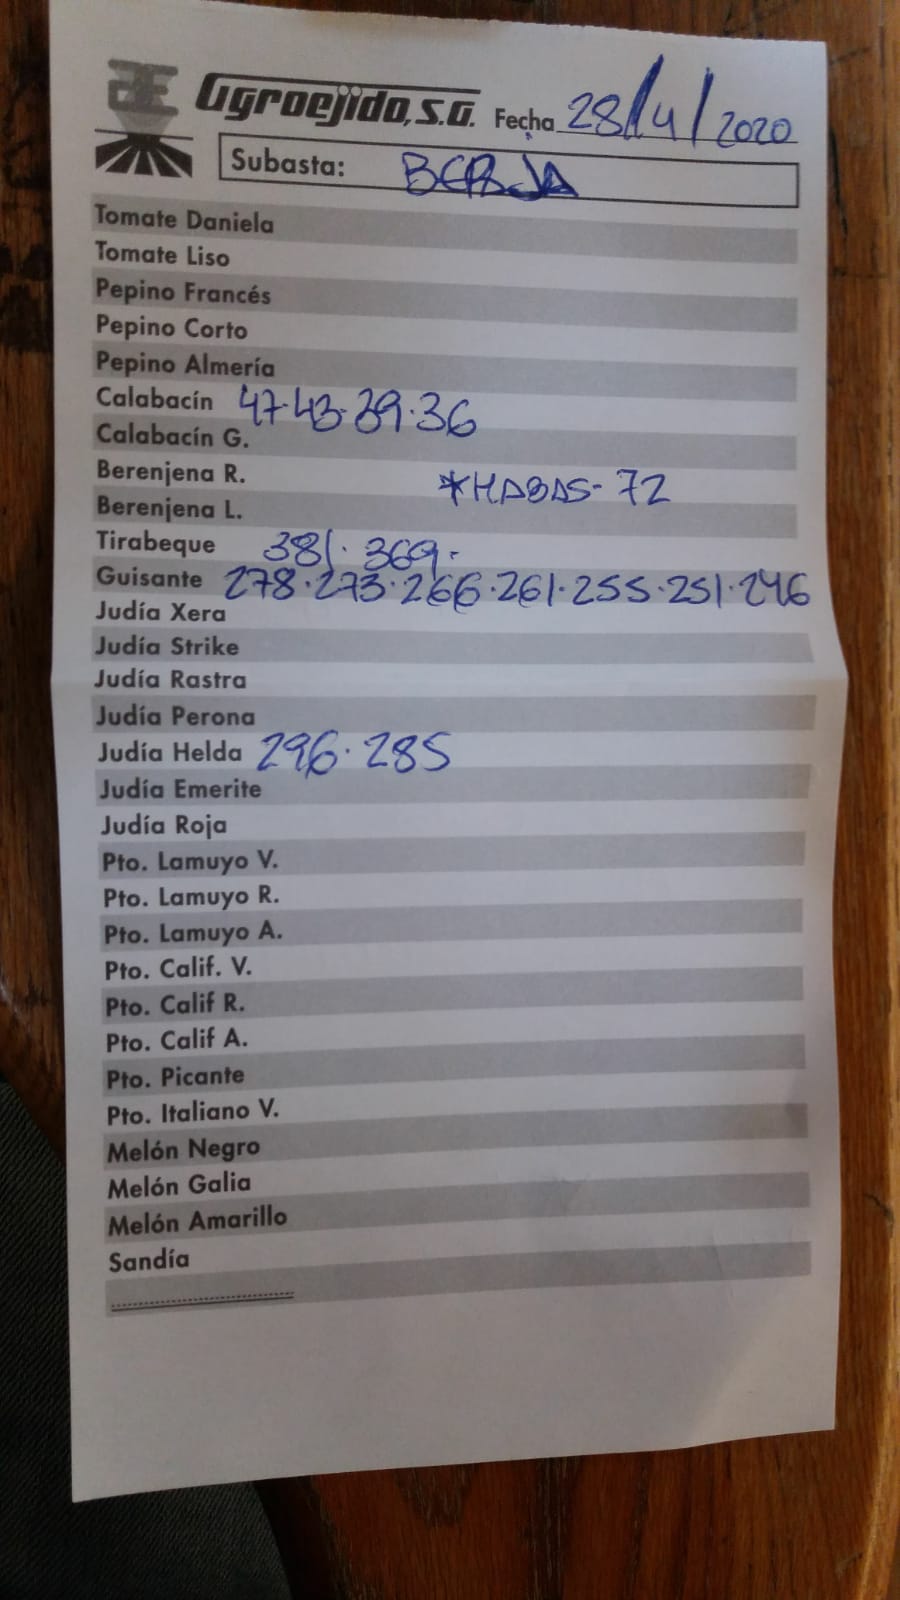 Agroejido, S.A. Fecha 28/4/2020
Subasta: BERJA
Tomate Daniela
Tomate Liso
Pepino Francés
Pepino Corto
Pepino Almería
Calabacín 47.43.39.36
Calabacín G.
Berenjena R. *HABAS- 72
Berenjena L.
Tirabeque 381. 369.
Guisante 278.273.266.261.255.251.246
Judía Xera
Judía Strike
Judía Rastra
Judía Perona
Judía Helda 296. 285
Judía Emerite
Judía Roja
Pto. Lamuyo V.
Pto. Lamuyo R.
Pto. Lamuyo A.
Pto. Calif. V.
Pto. Calif R.
Pto. Calif A.
Pto. Picante
Pto. Italiano V.
Melón Negro
Melón Galia
Melón Amarillo
Sandía